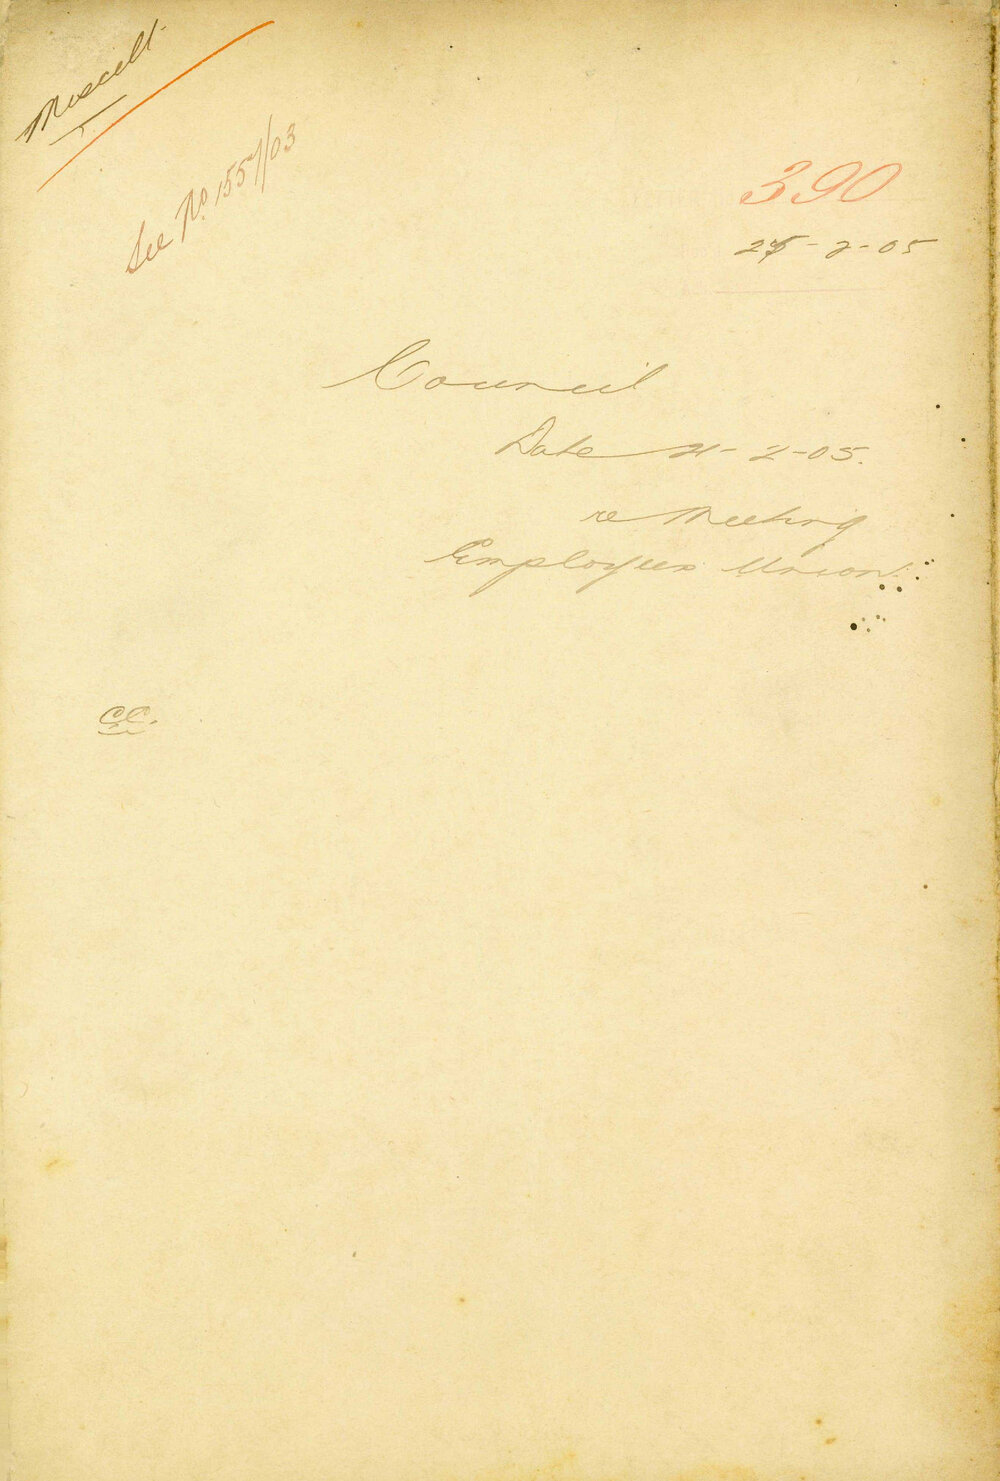 Miscell
See No. 1557/03
390
25-2-05
Council
Date 21-2-05.
re Meeting
Employees Union.
CC.